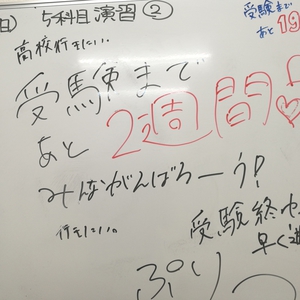 日)
5科目演習②
受験まで
あと19
高校行きたい。
受験まで
あと
2週間
みんながんばろーう!
行きたい。
受験終わ
早く遊
ぷりっ